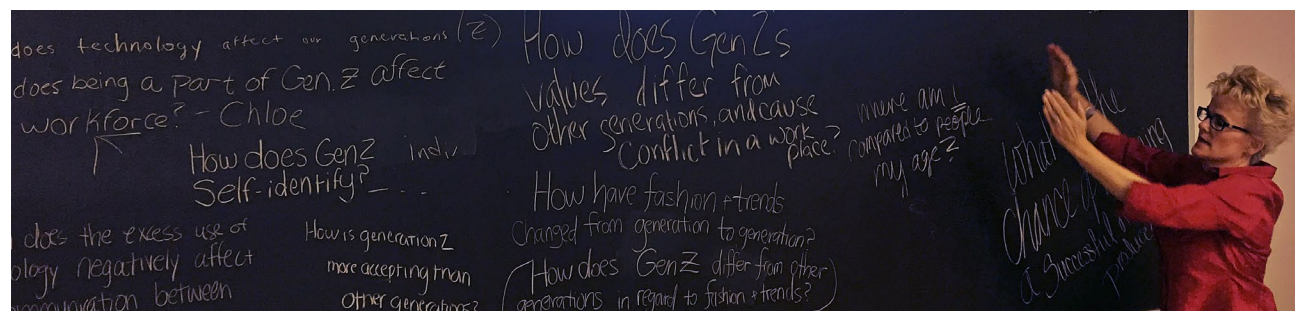 does technology affect our generations (Z)
does being a part of Gen. Z affect
workforce? - Chloe
How does GenZ
Self-identify? _ . . .
does the excess use of
ology negatively affect
ommunication between
How is generation Z
more accepting than
other generations?
How does GenZs
values differ from
other generations, and cause
Conflict in a work
place?
How have fashion + trends
changed from generation to generation?
(How does GenZ differ from other)
generations in regard to fashion + trends?
where am I
compared to people
my age?
What the
chance
a successful